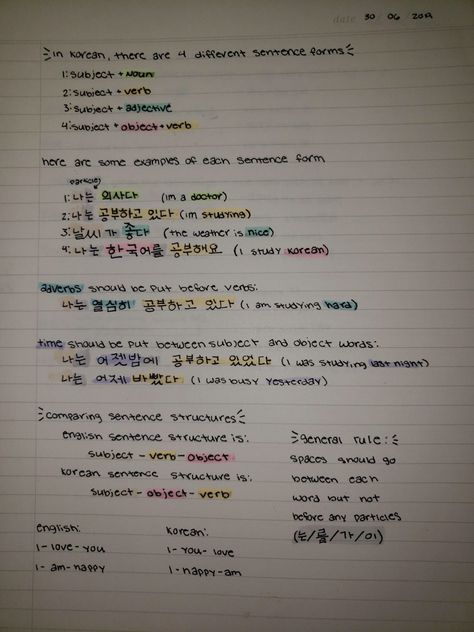 date 30 / 06 / 2019
in korean, there are 4 different sentence forms
1: subject + noun
2: subject + verb
3: subject + adjective
4: subject + object + verb
here are some examples of each sentence form
particle
1: 나는 의사다 (im a doctor)
2: 나는 공부하고 있다 (im studying)
3: 날씨가 좋다 (the weather is nice)
4: 나는 한국어를 공부해요 (i study korean)
adverbs should be put before verbs:
나는 열심히 공부하고 있다 (i am studying hard)
time should be put between subject and object words:
나는 어젯밤에 공부하고 있었다 (i was studying last night)
나는 어제 바빴다 (i was busy yesterday)
comparing sentence structures
english sentence structure is:
subject - verb - object
korean sentence structure is:
subject - object - verb
general rule:
spaces should go
between each
word but not
before any particles
(는/를/가/이)
english:
i - love - you
i - am - happy
korean:
i - you - love
i - happy - am